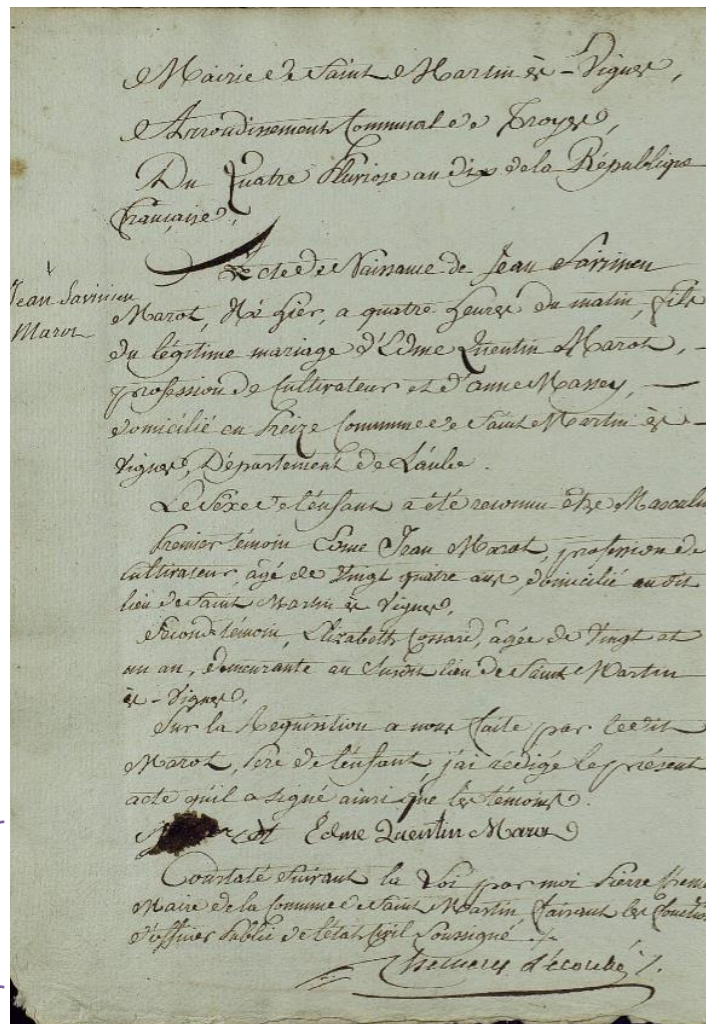 Mairie de Saint Martin ès - Vignes,
Arrondissement Communal de Troyes,
Du Quatre Pluviose an dix de la République
française,
Acte de Naissance de Jean Savinien
Jean Savinien
Marot
Marot, Né hier, a quatre heures du matin, fils
du légitime mariage d'Edme Quentin Marot,
profession de Cultivateur et d'anne Massey,
domicilié en Preize Commune de Saint Martin ès -
Vignes, Département de L'aube.
Le Sexe de l'enfant a été reconnu être Masculin
Premier témoin Edme Jean Marot, profession de
Cultivateur, âgé de Vingt quatre ans, domicilié au dit
lieu de Saint Martin ès Vignes,
Second témoin, Elizabeth, âgée de Vingt et
un an, demeurante au Susdit lieu de Saint Martin
ès - Vignes,
Sur la Requisition a nous faite par ledit
Marot, Père de l'enfant, j'ai rédigé le présent
acte qu'il a signé ainsi que les témoins.
Edme Quentin Marot
Constaté Suivant la Loi par moi Pierre
Maire de la Commune de Saint Martin, faisant les fonctions
d'officier Public de l'état Civil Soussigné